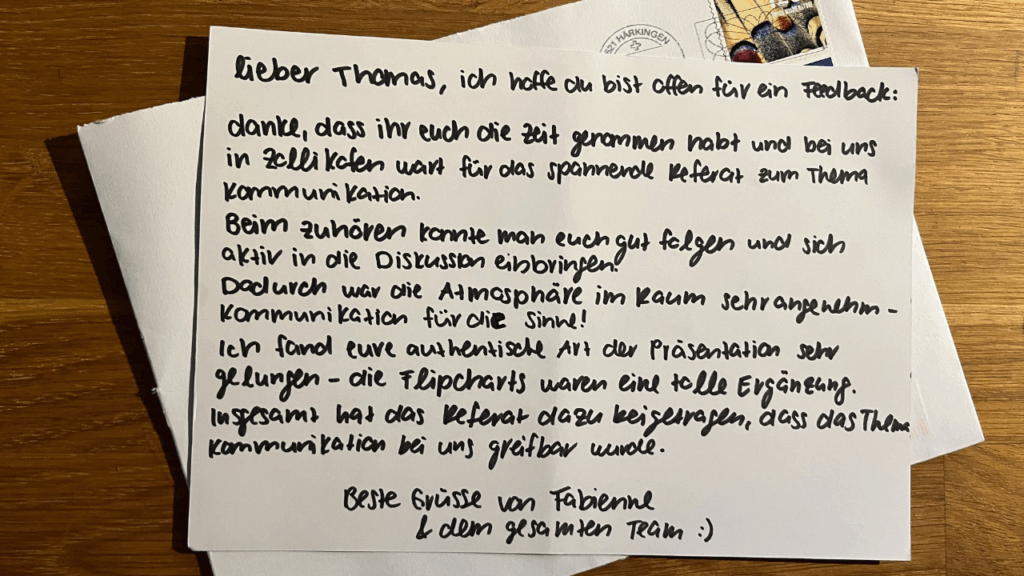 621 HÄRKINGEN
lieber Thomas, ich hoffe du bist offen für ein Feedback:
danke, dass ihr euch die Zeit genommen habt und bei uns
in Zollikofen wart für das spannende Referat zum Thema
Kommunikation.
Beim zuhören konnte man euch gut folgen und sich
aktiv in die Diskussion einbringen!
Dadurch war die Atmosphäre im Raum sehr angenehm –
Kommunikation für die Sinne!
Ich fand eure authentische Art der Präsentation sehr
gelungen – die Flipcharts waren eine tolle Ergänzung.
Insgesamt hat das Referat dazu beigetragen, dass das Thema
Kommunikation bei uns greifbar wurde.
Beste Grüsse von Fabienne
& dem gesamten Team :)